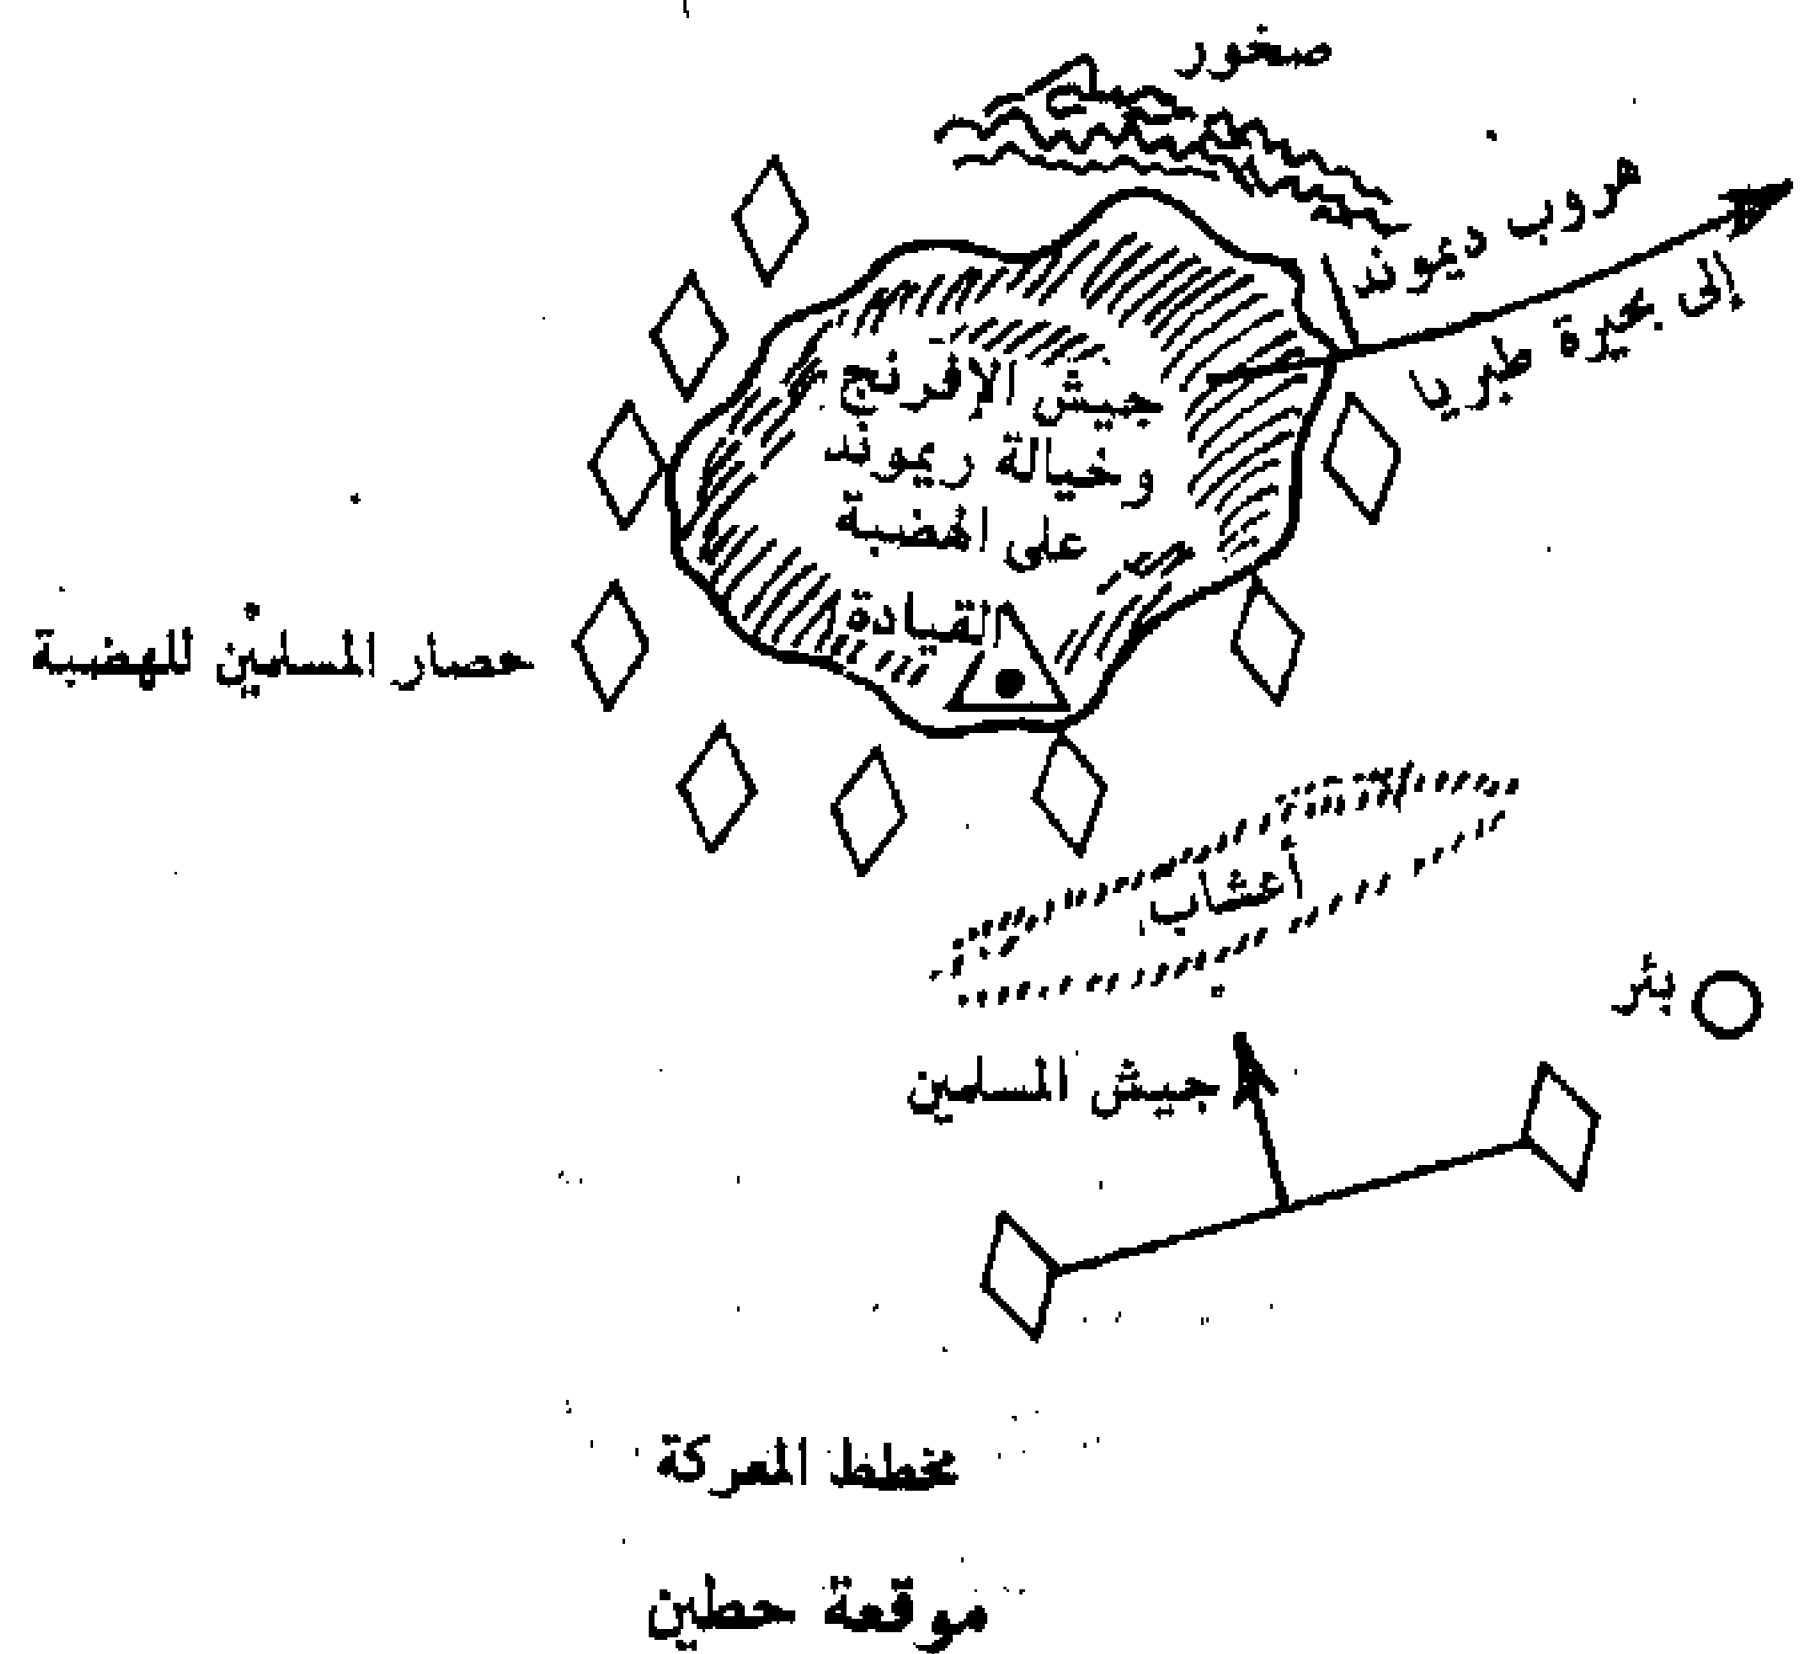 صخور
هروب ديموند
إلى بحيرة طبريا
جيش الإفرنج
وخيالة ريموند
على الهضبة
القيادة
حصار المسلمين للهضبة
أعشاب
بئر
جيش المسلمين
مخطط المعركة
موقعة حطين